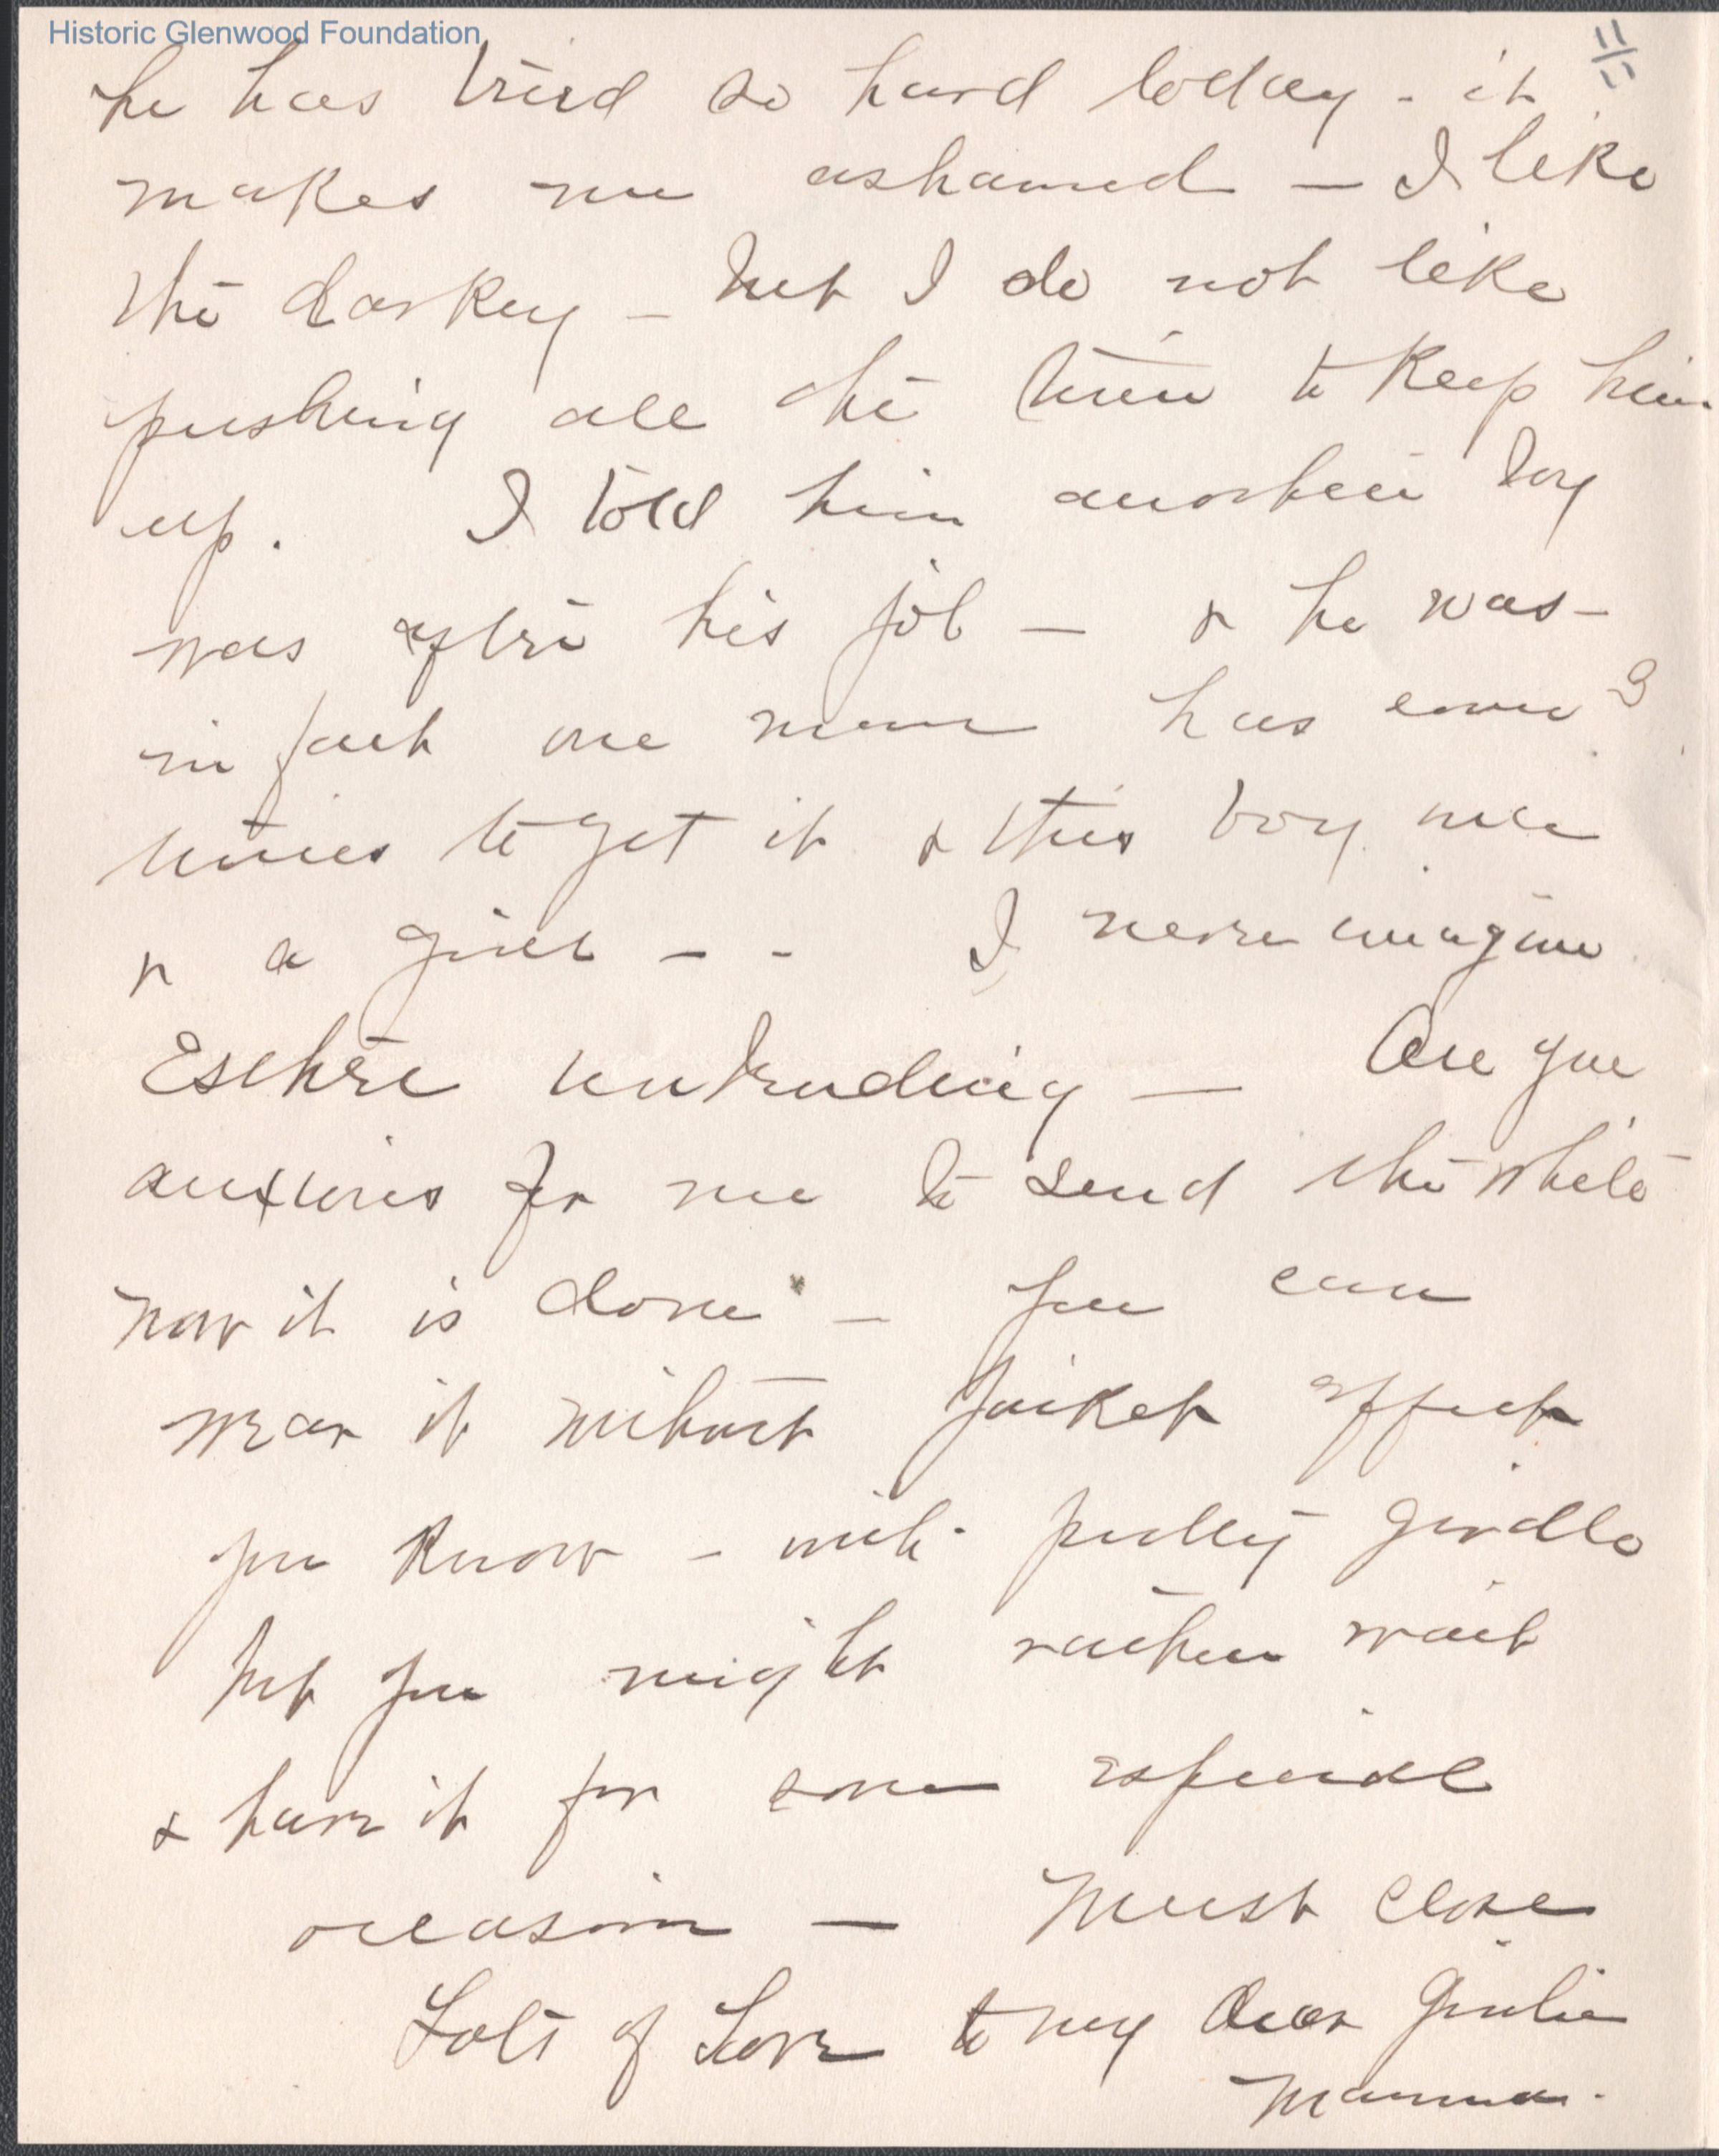 Historic Glenwood Foundation
11/11
he has tried so hard today - it
makes me ashamed — I like
the darkey — but I do not like
pushing all the time to keep him
up. I told him another boy
was after his job — & he was —
in fact one man has come 3
times to get it & this boy
& a girl - - I never imagine
Esther intruding — Are you
anxious for me to send the white
now it is done — you can
wear it without jacket effect
you know — with pretty girdle
but you might rather wait
& have it for some especial
occasion — Must close
Lots of Love to my dear Julia
Mamma.